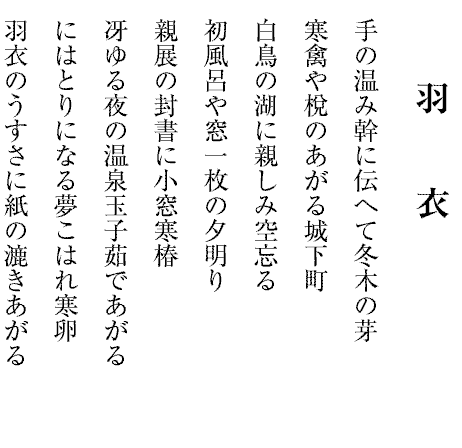 羽衣
手の温み幹に伝へて冬木の芽
寒禽や梲のあがる城下町
白鳥の湖に親しみ空忘る
初風呂や窓一枚の夕明り
親展の封書に小窓寒椿
冴ゆる夜の温泉玉子茹であがる
にはとりになる夢こはれ寒卵
羽衣のうすさに紙の漉きあがる